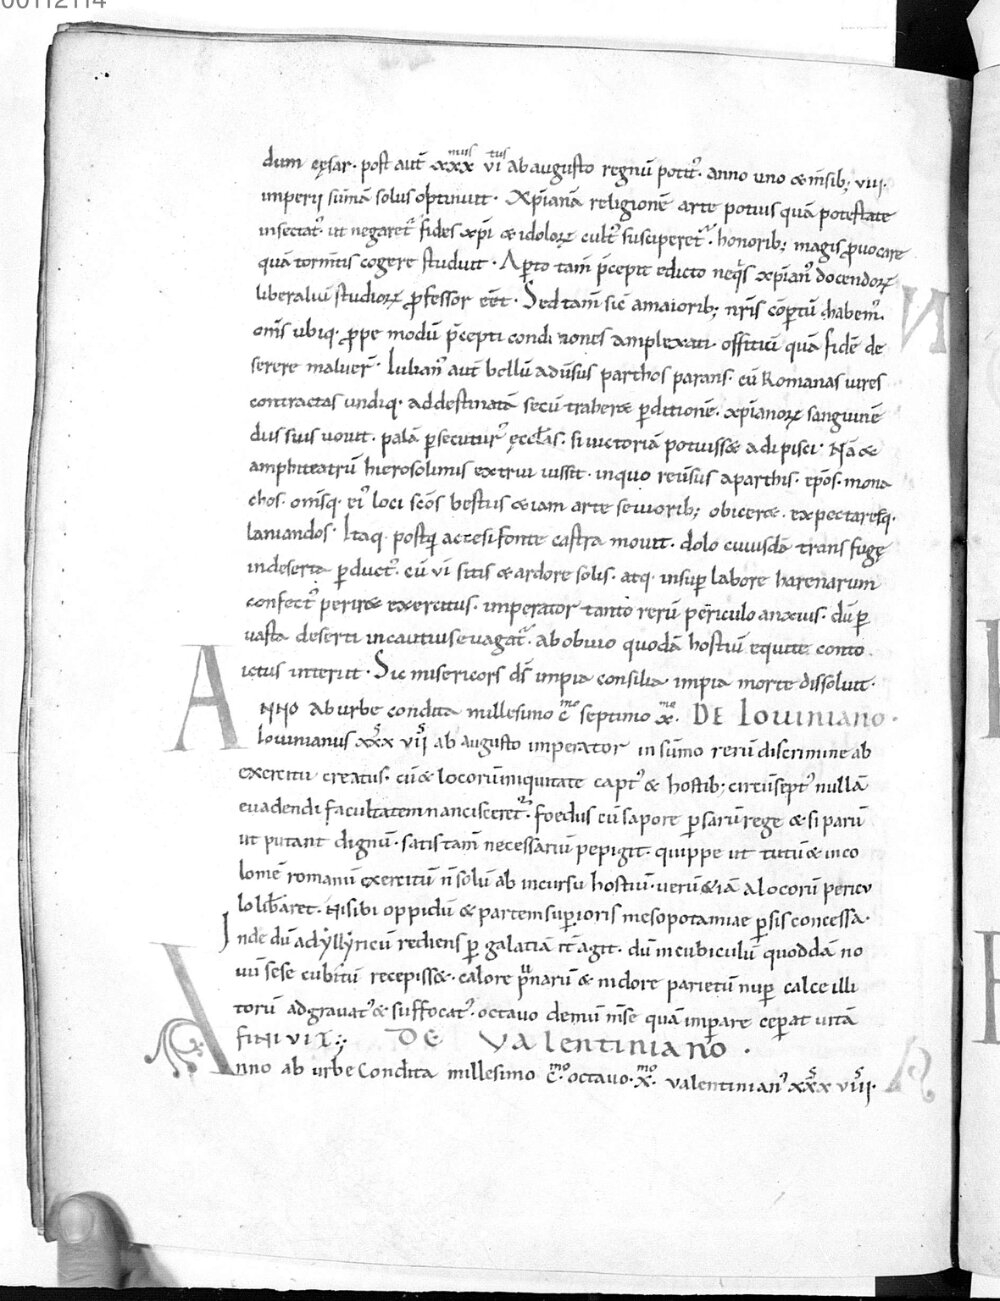 00112114
dum cęsar· post aut̄ xxx^mus vi^tus ab augusto regnū potit᷒· anno uno & m̄sib; viii·
imperii sūmā solus optinuit· Xp̄ianā religionē arte potius quā potestate
insectat᷒· ut negaret᷒ fides xp̄i & idoloꝝ cult᷒ susciperet᷒· honorib; magis ꝓuocare
quā torm̄tis cogere studuit· Aꝑto tam̄ p̄cepit edicto neq̄s xp̄ian᷒ docendoꝝ
liberaliū studioꝝ ꝓfessor eēt· Sed tam̄ sic̄ a maiorib; n̄ris cōꝑtū habem᷒·
om̄s ubiq· ꝓpe modū p̄cepti condiciones amplexati· offitiū quā fidē de
serere maluer̄· Iulian᷒ aut̄ bellū adūsus parthos parans· cū Romanas uires
contractas undiq· ad destinatā secū traheret ꝑditionē· xp̄ianoꝝ sanguinē
dus suis uouit· palā ꝑsecutur᷒ ęcclas̄· si uictoriā potuiss& adipisci· Nā &
amphiteatrū hierosolimis extrui iussit· in quo reūsus a parthis· ep̄os· mona
chos· om̄sq· ei᷒ loci sc̄os bestiis &iam arte seuiorib; obicer&· expectaretq·
laniandos· Itaq· postq̄ a ctesifonte castra mouit· dolo cuiusdā transfugę
in deserta ꝑduct᷒· cū vi sitis & ardore solis· atq· insuꝑ labore harenarum
confect᷒ perir& exercitus· imperator tanto rerū periculo anxius· dū ꝑ
uasta deserti incautius euagat᷒· ab obuio quodā hostiū equite conto
ictus interiit· Sic misericors d̄s impia consilia impia morte dissoluit·
ANNO ab urbe condita millesimo c^mo septimo x^mo· DE Iouiniano·
Iouinianus xxx^s vii^s ab augusto imperator in sūmo rerū discrimine ab
exercitu creatus· cū & locorū iniquitate capt᷒ & hostib; circūsept᷒ nullā
euadendi facultatem nancisceret᷒· foedus cū sapore ꝑsarū rege & si parū
ut putant dignū· satis tam̄ necessariū pepigit· quippe ut tutū & inco
lomē romanū exercitū n̄ solū ab incursu hostiū· uerū &iā a locorū pericu
lo lib̄aret· Nisibi oppidū & partem suꝑioris mesopotamiae ꝑsis concessa·
Inde dū ad yllyricū rediens ꝑ galatiā it̄ agit· dū in cubiculū quoddā no
uū sese cubitū recepiss&· calore p^unarū & nidore parietū nuꝑ calce illi
torū adgrauat᷒ & suffocat᷒· octauo demū m̄se quā imꝑare ceꝑat uitā
FINIVIT:; DE Valentiniano·
Anno ab urbe Condita millesimo c^mo· octauo· x^mo· valentinian᷒ xxx^s viii^s·